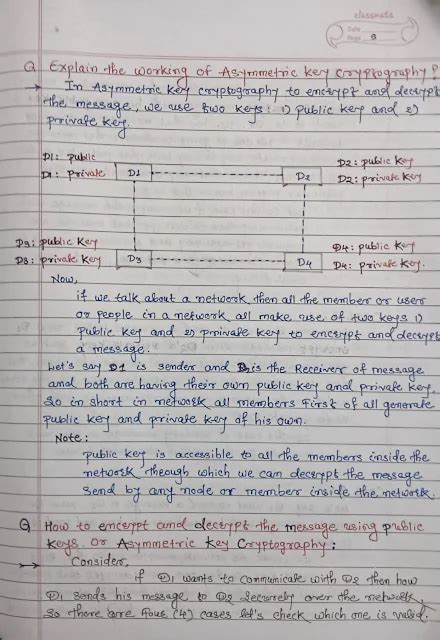 classmate
Date
Page 8
Q Explain the working of Asymmetric key cryptography?
→ In Asymmetric key cryptography to encrypt and decrypt
the message, we use two keys: 1) public key and 2)
private key.
D1: public
D1: private
D1
D2
D2: public key
D2: private key
D3: public key
D3: private key
D3
D4
D4: public key
D4: private key.
Now,
if we talk about a network then all the member or user
or people in a network all make use of two keys 1)
public key and 2) private key to encrypt and decrypt
a message.
Let's say D1 is sender and D2 is the Receiver of message
and both are having their own public key and private key.
So in short in network all members first of all generate
public key and private key of his own.
Note:
public key is accessible to all the members inside the
network through which we can decrypt the message
send by any node or member inside the network.
Q How to encrypt and decrypt the message using public
keys or Asymmetric Key Cryptography:
→ Consider,
if D1 wants to communicate with D2 then how
D1 sends his message to D2 securely over the network
so there are four (4) cases let's check which one is valid.